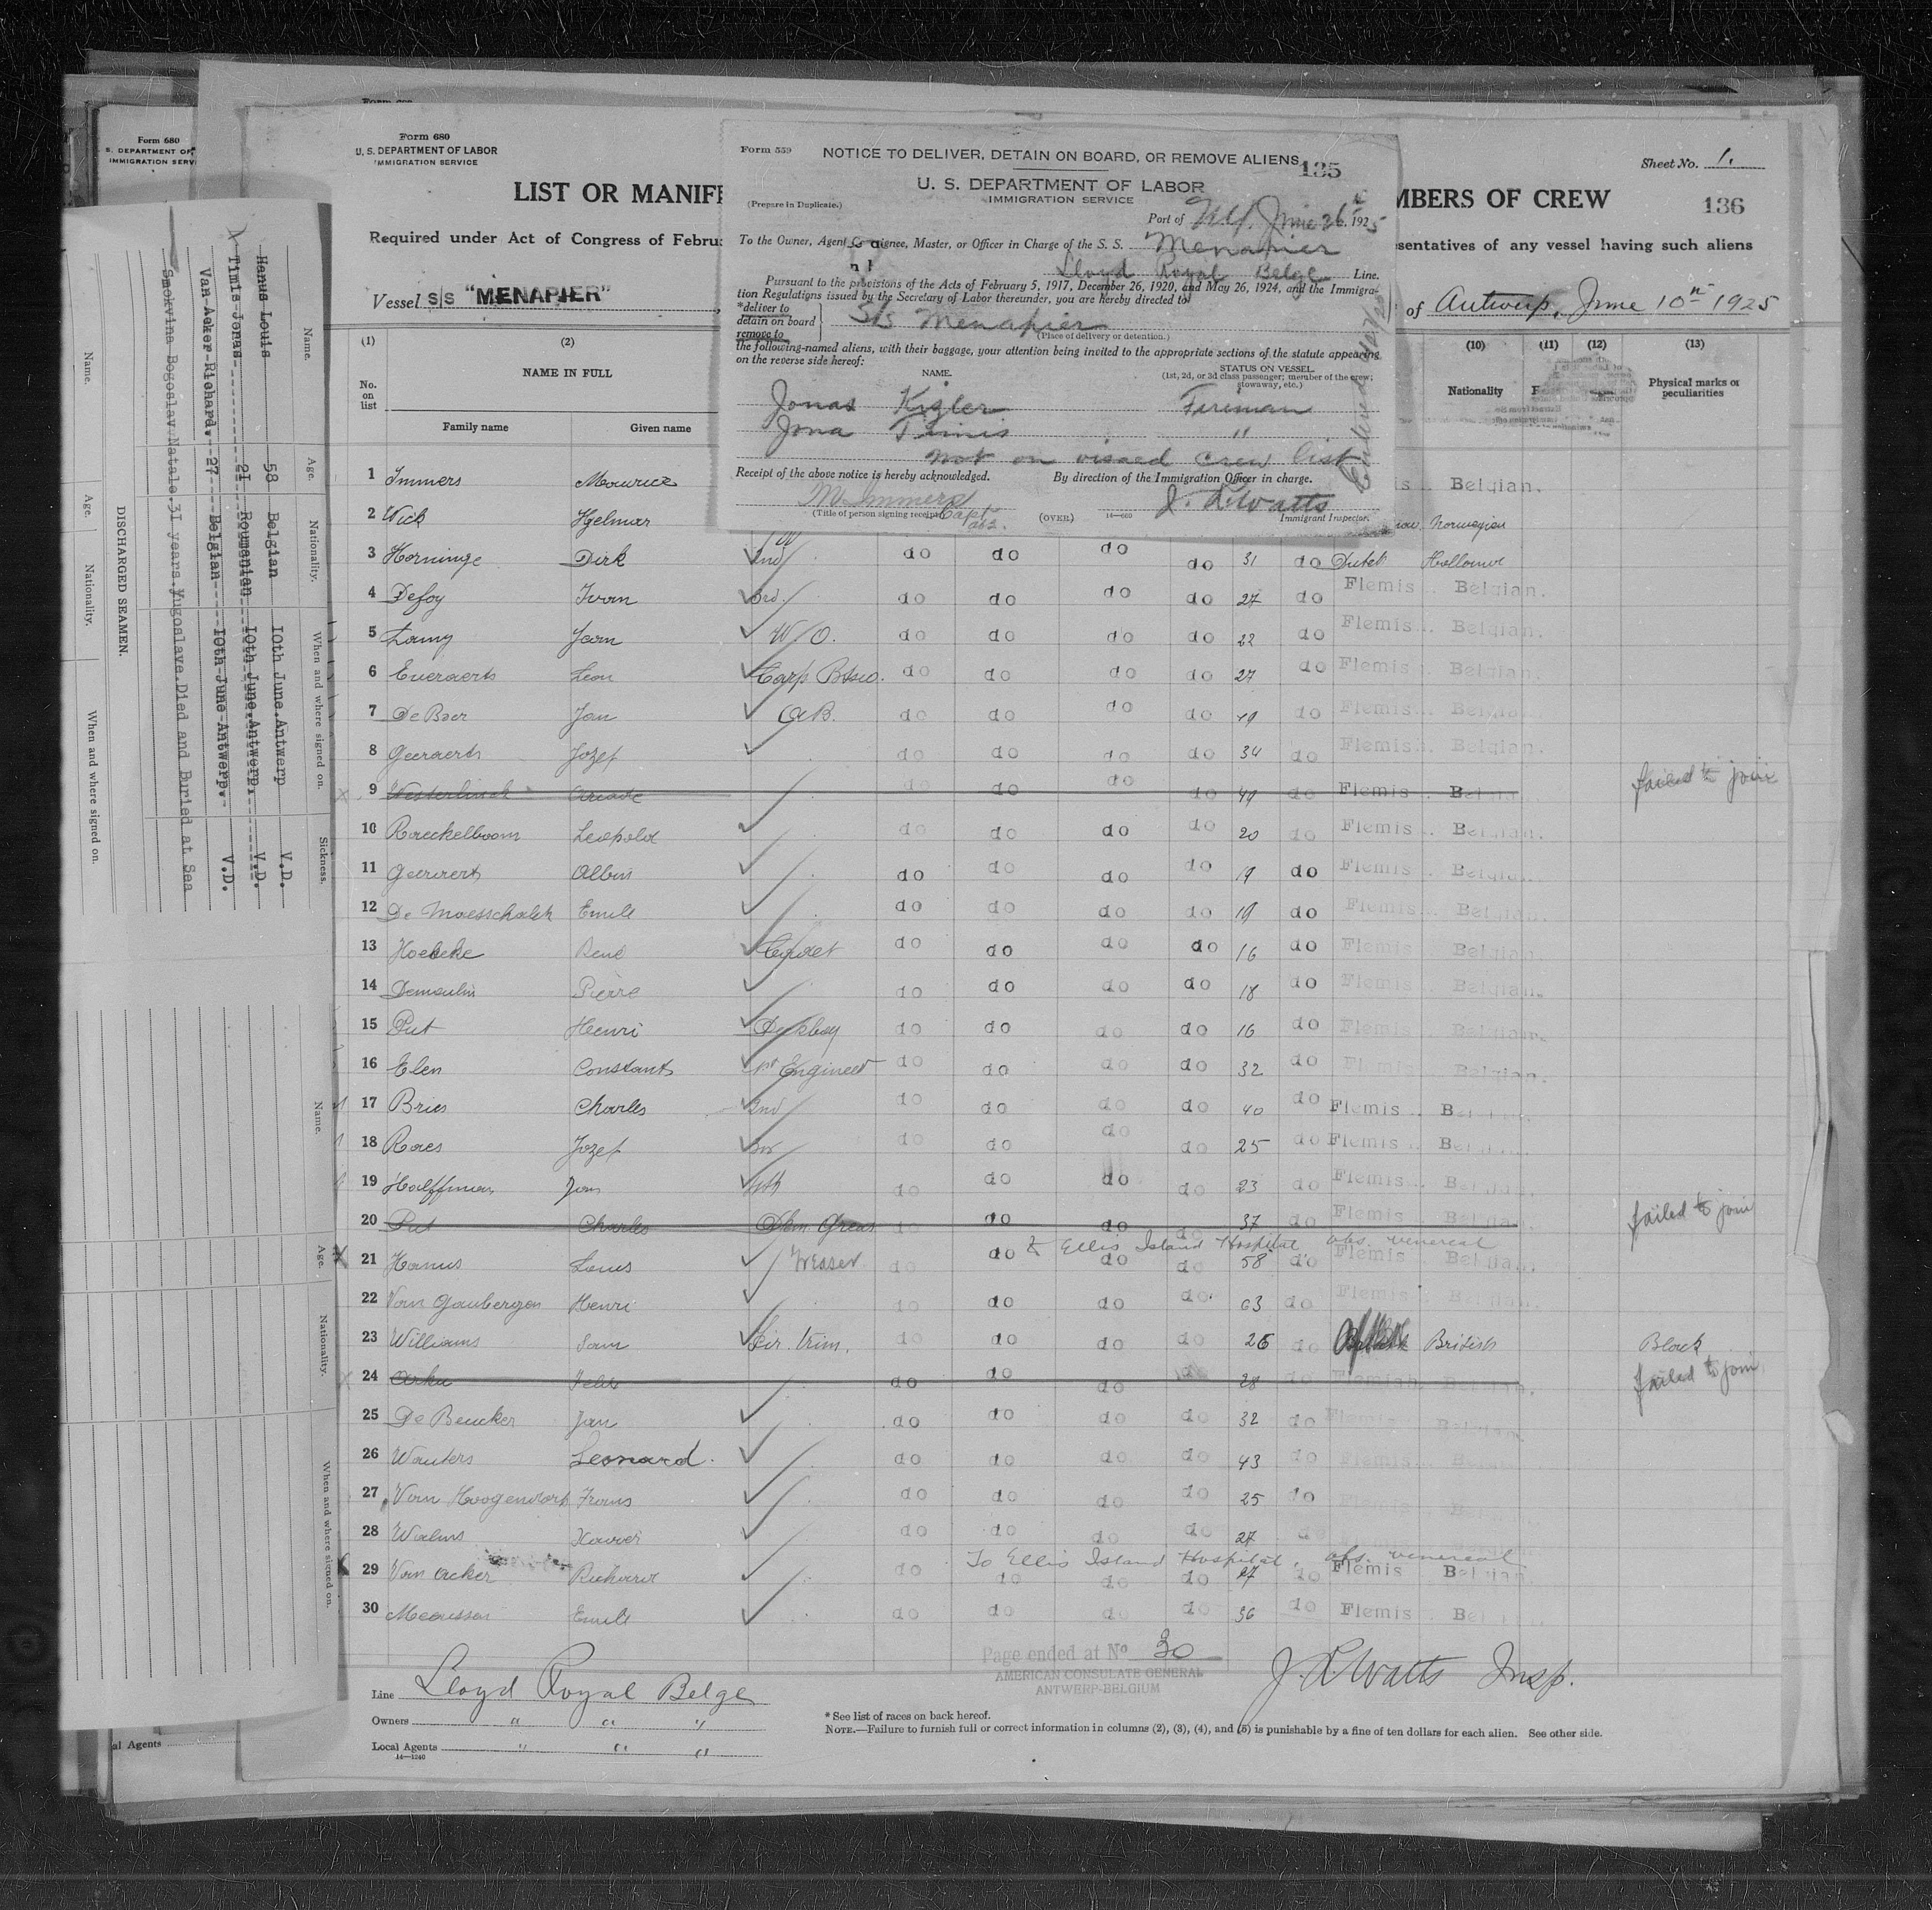 Form 680
U. S. DEPARTMENT OF LABOR
IMMIGRATION SERVICE
LIST OR MANIF
MBERS OF CREW
Sheet No. 1.
136
Required under Act of Congress of Febru
sentatives of any vessel having such aliens
Vessel S/S "MENAPIER"
of Antwerp, June 10th 1925
Form 559
NOTICE TO DELIVER, DETAIN ON BOARD, OR REMOVE ALIENS
135
U. S. DEPARTMENT OF LABOR
IMMIGRATION SERVICE
(Prepare in Duplicate.)
Port of N.Y. June 26th, 1925
To the Owner, Agent, Consignee, Master, or Officer in Charge of the S. S. Menapier
Lloyd Royal Belge Line.
Pursuant to the provisions of the Acts of February 5, 1917, December 26, 1920, and May 26, 1924, and the Immigra-
tion Regulations issued by the Secretary of Labor thereunder, you are hereby directed to
*deliver to
detain on board
remove to
S/S Menapier
(Place of delivery or detention.)
the following-named aliens, with their baggage, your attention being invited to the appropriate sections of the statute appearing
on the reverse side hereof:
NAME.
STATUS ON VESSEL.
(1st, 2d, or 3d class passenger; member of the crew;
stowaway, etc.)
Jonas Kigler Fireman
Jona Timis "
not on visaed crew list
Receipt of the above notice is hereby acknowledged.
By direction of the Immigration Officer in charge.
M. Immers Capt
J. R. Watts
(Title of person signing receipt.)
(OVER)
14—660
Immigrant Inspector.
(1) (2) (10) (11) (12) (13)
No. on list
NAME IN FULL
Nationality
Physical marks or peculiarities
Family name Given name
1 Immers Maurice Belgian.
2 Wick Hjelmar Norwegian
3 Horninge Dirk 2nd do do do do 31 do Dutch Holland
4 Defoy Ivan 3rd. do do do do 27 do Flemis Belgian.
5 Lamy Jean W. O. do do do do 22 do Flemis Belgian.
6 Eueraerts Leon Carp Bosw. do do do do 27 do Flemis Belgian.
7 De Baer Jan A.B. do do do do 49 do Flemis Belgian.
8 Geeraerts Jozef do do do do 34 do Flemis Belgian.
9 Westerlinck Arcade do do do do 49 do Flemis Belgian failed to join
10 Raeckelboom Leopold do do do do 20 do Flemis Belgian.
11 Geeraerts Albin do do do do 19 do Flemis Belgian.
12 De Maesschalck Emile do do do do 19 do Flemis Belgian.
13 Hoebeke René Cadet do do do do 16 do Flemis Belgian.
14 Demoulin Pierre do do do do 18 do Flemis Belgian.
15 Put Henri Deksboy do do do do 16 do Flemis Belgian.
16 Elen Constant 1st Engineer do do do do 32 do Flemis Belgian.
17 Bries Charles 2nd do do do do 40 do Flemis Belgian.
18 Roes Jozef 3rd do do do do 25 do Flemis Belgian.
19 Halffman Jan 4th do do do do 23 do Flemis Belgian.
20 Put Charles Dkm. Greas. do do do do 37 do Flemis Belgian. failed to join
To Ellis Island Hospital, obs. venereal
21 Hanus Louis Greaser do do do do 58 do Flemis Belgian.
22 Van Gaubergen Henri do do do do 63 do Flemis Belgian.
23 Williams Sam Fir. trim. do do do do 26 do British Black
24 Arku Felix do do do do 28 do Flemish Belgian. failed to join
25 De Beucker Jan do do do do 32 do Flemis Belgian.
26 Wauters Leonard. do do do do 43 do Flemis Belgian
27 Van Hoogendorp Frans do do do do 25 do
28 Walms Xavier do do do do 27 do
To Ellis Island Hospital, obs. venereal
29 Van Acker Richard do do do do 27 do Flemis Belgian
30 Meeussen Emile do do do do 36 do Flemis Belgian
Page ended at No 30
AMERICAN CONSULATE GENERAL
ANTWERP-BELGIUM
J. R. Watts Insp.
Line Lloyd Royal Belge
Owners " " "
Local Agents " " "
14—1240
* See list of races on back hereof.
NOTE.—Failure to furnish full or correct information in columns (2), (3), (4), and (5) is punishable by a fine of ten dollars for each alien. See other side.
Form 680
S. DEPARTMENT OF
IMMIGRATION SERV
DISCHARGED SEAMEN.
Name. Age. Nationality. When and where signed on. Sickness.
Hanus Louis 58 Belgian 10th June.Antwerp V.D.
Timis Jonas 21 Roumanian 10th June.Antwerp. V.D.
Van Acker Richard. 27 Belgian 10th June Antwerp. V.D.
Smokvina Bogoslav Natale.31 years.Yugoslave.Died and Buried at Sea
Name. Age. Nationality. When and where signed on.
Name. Age. Nationality. When and where signed on.
al Agents